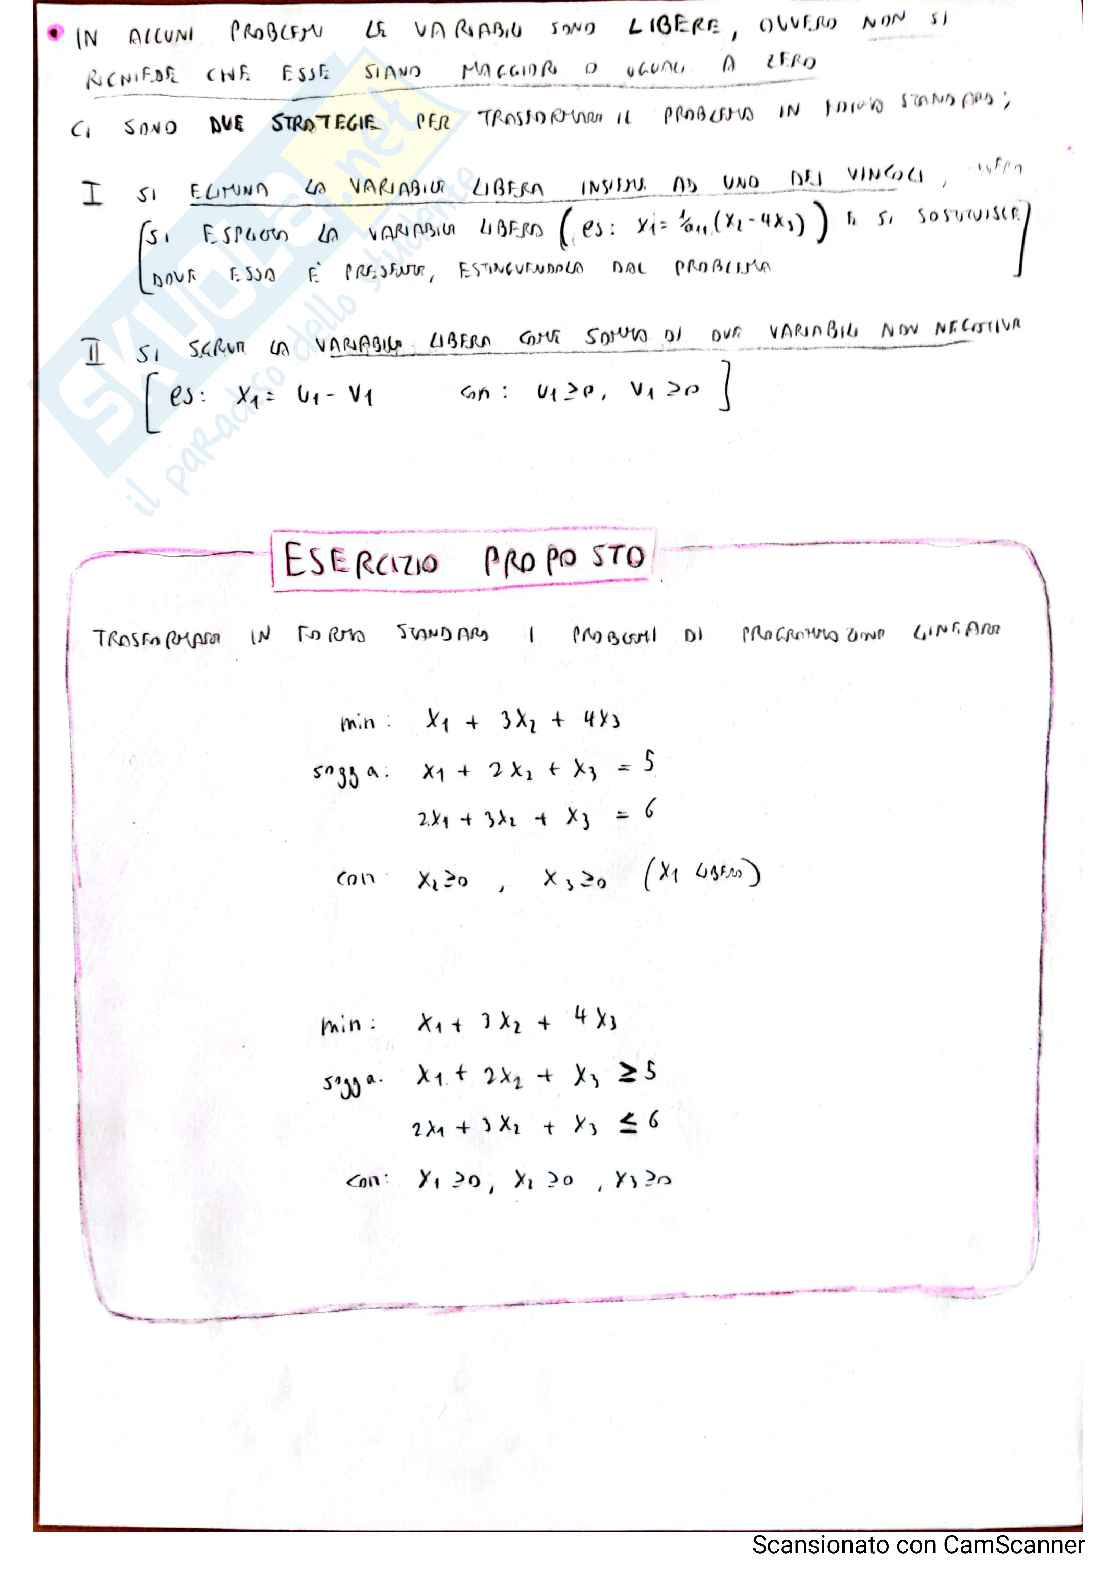 IN ALCUNI PROBLEMI LE VARIABILI SONO LIBERE, OVVERO NON SI
RICHIEDE CHE ESSE SIANO MAGGIORI O UGUALI A ZERO
CI SONO DUE STRATEGIE PER TRASFORMARE IL PROBLEMA IN FORMA STANDARD;
I SI ELIMINA LA VARIABILE LIBERA INSIEME AD UNO DEI VINCOLI,
[SI ESPLICITA LA VARIABILE LIBERA (es: X1 = 1/a11 (X2 - 4X3)) E SI SOSTITUISCE
DOVE ESSA È PRESENTE, ESTINGUENDOLA DAL PROBLEMA]
II SI SCRIVE LA VARIABILE LIBERA COME SOMMA DI DUE VARIABILI NON NEGATIVE
[es: X1 = U1 - V1 con: U1 ≥ 0, V1 ≥ 0]
ESERCIZIO PROPOSTO
TRASFORMARE IN FORMA STANDARD I PROBLEMI DI PROGRAMMAZIONE LINEARE
min: X1 + 3X2 + 4X3
sogg a: X1 + 2X2 + X3 = 5
2X1 + 3X2 + X3 = 6
con X2 ≥ 0, X3 ≥ 0 (X1 LIBERA)
min: X1 + 3X2 + 4X3
sogg a: X1 + 2X2 + X3 ≥ 5
2X1 + 3X2 + X3 ≤ 6
con: X1 ≥ 0, X2 ≥ 0, X3 ≥ 0
SKUOLA.net
il paradiso dello studente
Scansionato con CamScanner